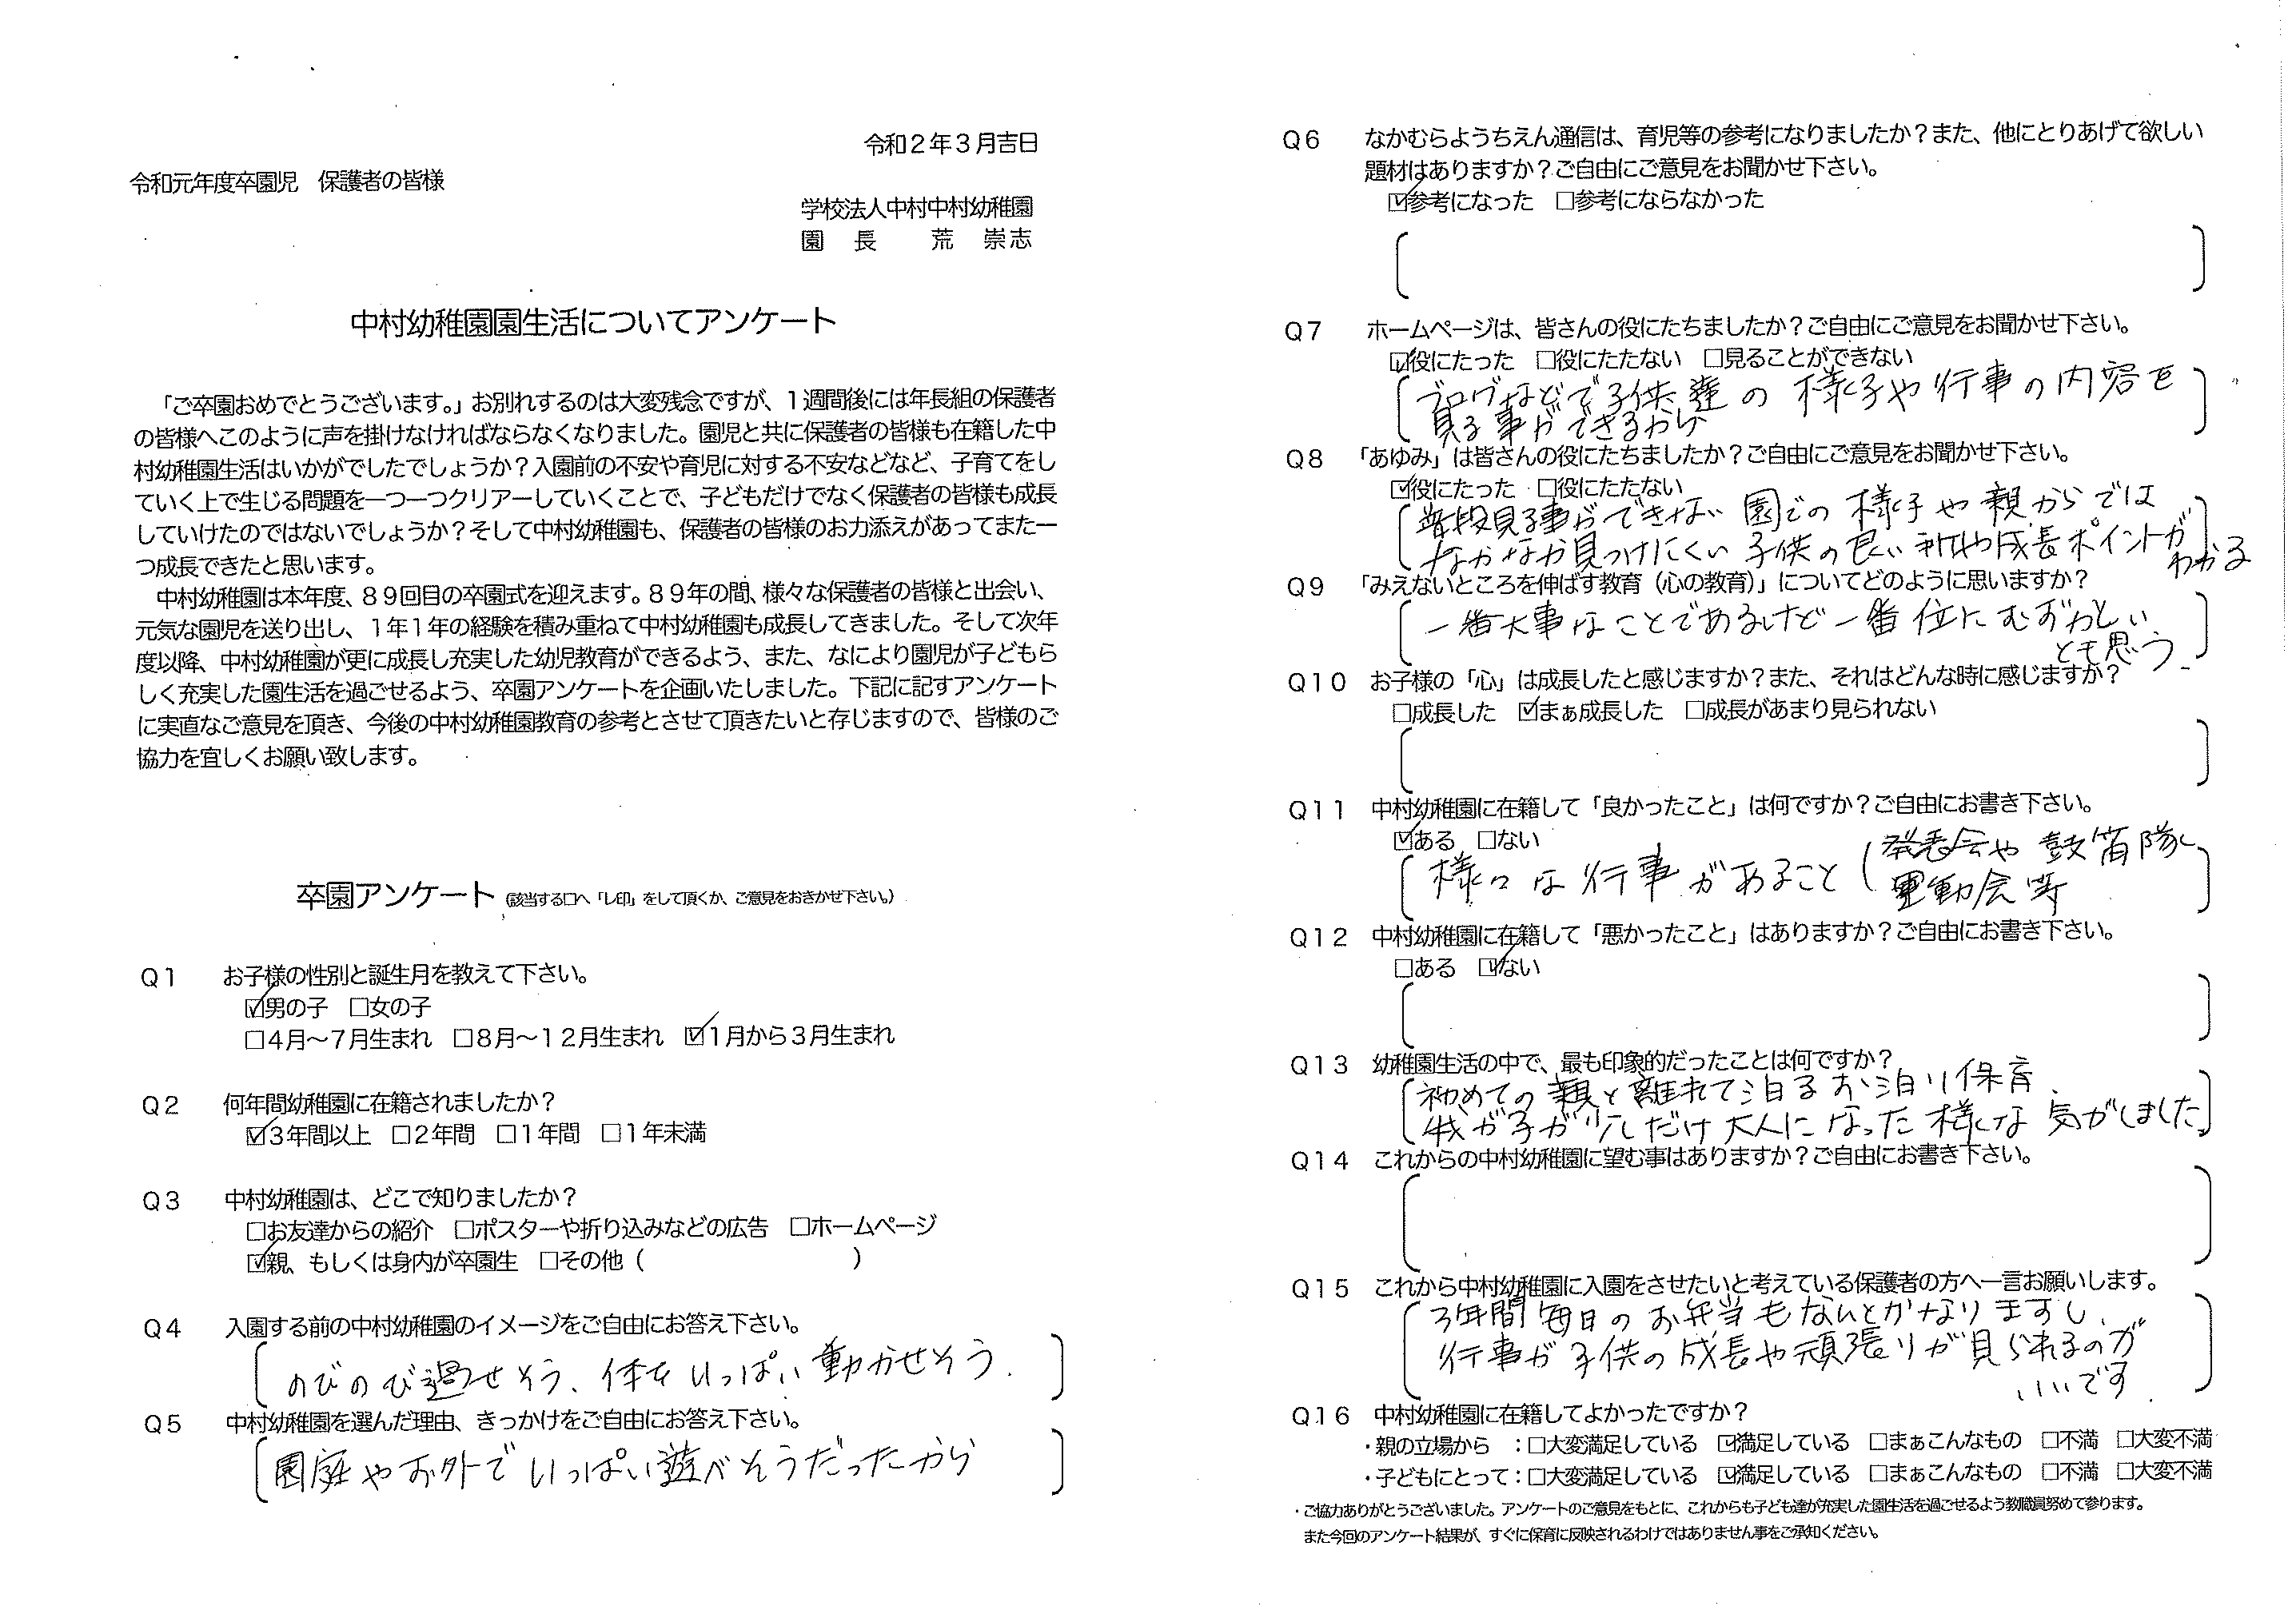 令和２年３月吉日
令和元年度卒園児　保護者の皆様
学校法人中村中村幼稚園
園　長　　荒　崇志
中村幼稚園園生活についてアンケート
「ご卒園おめでとうございます。」お別れするのは大変残念ですが、１週間後には年長組の保護者
の皆様へこのように声を掛けなければならなくなりました。園児と共に保護者の皆様も在籍した中
村幼稚園生活はいかがでしたでしょうか？入園前の不安や育児に対する不安などなど、子育てをし
ていく上で生じる問題を一つ一つクリアーしていくことで、子どもだけでなく保護者の皆様も成長
していけたのではないでしょうか？そして中村幼稚園も、保護者の皆様のお力添えがあってまた一
つ成長できたと思います。
中村幼稚園は本年度、８９回目の卒園式を迎えます。８９年の間、様々な保護者の皆様と出会い、
元気な園児を送り出し、１年１年の経験を積み重ねて中村幼稚園も成長してきました。そして次年
度以降、中村幼稚園が更に成長し充実した幼児教育ができるよう、また、なにより園児が子どもら
しく充実した園生活を過ごせるよう、卒園アンケートを企画いたしました。下記に記すアンケート
に実直なご意見を頂き、今後の中村幼稚園教育の参考とさせて頂きたいと存じますので、皆様のご
協力を宜しくお願い致します。
卒園アンケート（該当する□へ「レ印」をして頂くか、ご意見をおきかせ下さい。）
Ｑ１　お子様の性別と誕生月を教えて下さい。
☑男の子　□女の子
□４月～７月生まれ　□８月～１２月生まれ　☑１月から３月生まれ
Ｑ２　何年間幼稚園に在籍されましたか？
☑３年間以上　□２年間　□１年間　□１年未満
Ｑ３　中村幼稚園は、どこで知りましたか？
□お友達からの紹介　□ポスターや折り込みなどの広告　□ホームページ
☑親、もしくは身内が卒園生　□その他（　　　　　）
Ｑ４　入園する前の中村幼稚園のイメージをご自由にお答え下さい。
のびのび過せそう、体をいっぱい動かせそう.
Ｑ５　中村幼稚園を選んだ理由、きっかけをご自由にお答え下さい。
園庭やお外でいっぱい遊べそうだったから
Ｑ６　なかむらようちえん通信は、育児等の参考になりましたか？また、他にとりあげて欲しい
題材はありますか？ご自由にご意見をお聞かせ下さい。
☑参考になった　□参考にならなかった
Ｑ７　ホームページは、皆さんの役にたちましたか？ご自由にご意見をお聞かせ下さい。
☑役にたった　□役にたたない　□見ることができない
ブログなどで子供達の様子や行事の内容を
見る事ができるから
Ｑ８　「あゆみ」は皆さんの役にたちましたか？ご自由にご意見をお聞かせ下さい。
☑役にたった　□役にたたない
普段見る事ができない園での様子や親からでは
なかなか見つけにくい子供の良い所や成長ポイントが
わかる
Ｑ９　「みえないところを伸ばす教育（心の教育）」についてどのように思いますか？
一番大事なことであるけど一番位にむずかしい
とも思う.
Ｑ１０　お子様の「心」は成長したと感じますか？また、それはどんな時に感じますか？
□成長した　☑まぁ成長した　□成長があまり見られない
Ｑ１１　中村幼稚園に在籍して「良かったこと」は何ですか？ご自由にお書き下さい。
☑ある　□ない
様々な行事があること（発表会や鼓笛隊、
運動会等
Ｑ１２　中村幼稚園に在籍して「悪かったこと」はありますか？ご自由にお書き下さい。
□ある　☑ない
Ｑ１３　幼稚園生活の中で、最も印象的だったことは何ですか？
初めての親と離れて泊るお泊り保育.
我が子が少しだけ大人になった様な気がしました
Ｑ１４　これからの中村幼稚園に望む事はありますか？ご自由にお書き下さい。
Ｑ１５　これから中村幼稚園に入園をさせたいと考えている保護者の方へ一言お願いします。
３年間毎日のお弁当もなんとかなりますし、
行事が子供の成長や頑張りが見られるのが
いいです.
Ｑ１６　中村幼稚園に在籍してよかったですか？
・親の立場から　：□大変満足している　☑満足している　□まぁこんなもの　□不満　□大変不満
・子どもにとって：□大変満足している　☑満足している　□まぁこんなもの　□不満　□大変不満
・ご協力ありがとうございました。アンケートのご意見をもとに、これからも子ども達が充実した園生活を過ごせるよう教職員努めて参ります。
また今回のアンケート結果が、すぐに保育に反映されるわけではありません事をご承知ください。